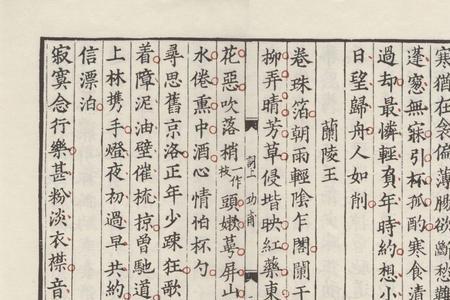 寒猶在衾偏薄腸欲斷愁
蓬窻無寐引杯孤酌寒食清
過却最憐輕負年時約想小
日望歸舟人如削
蘭陵王
卷珠箔朝雨輕陰乍閣闌干
柳弄晴芳草侵堦映紅藥東
詞上
花惡吹落梢作枝頭嫩萼屏山
水倦熏中酒心情怕杯勺
尋思舊京洛正年少踈狂歌
着障泥油壁催梳掠曾馳道
上林携手燈夜初過早共約
信漂泊
寂寞念行樂甚粉淡衣襟音